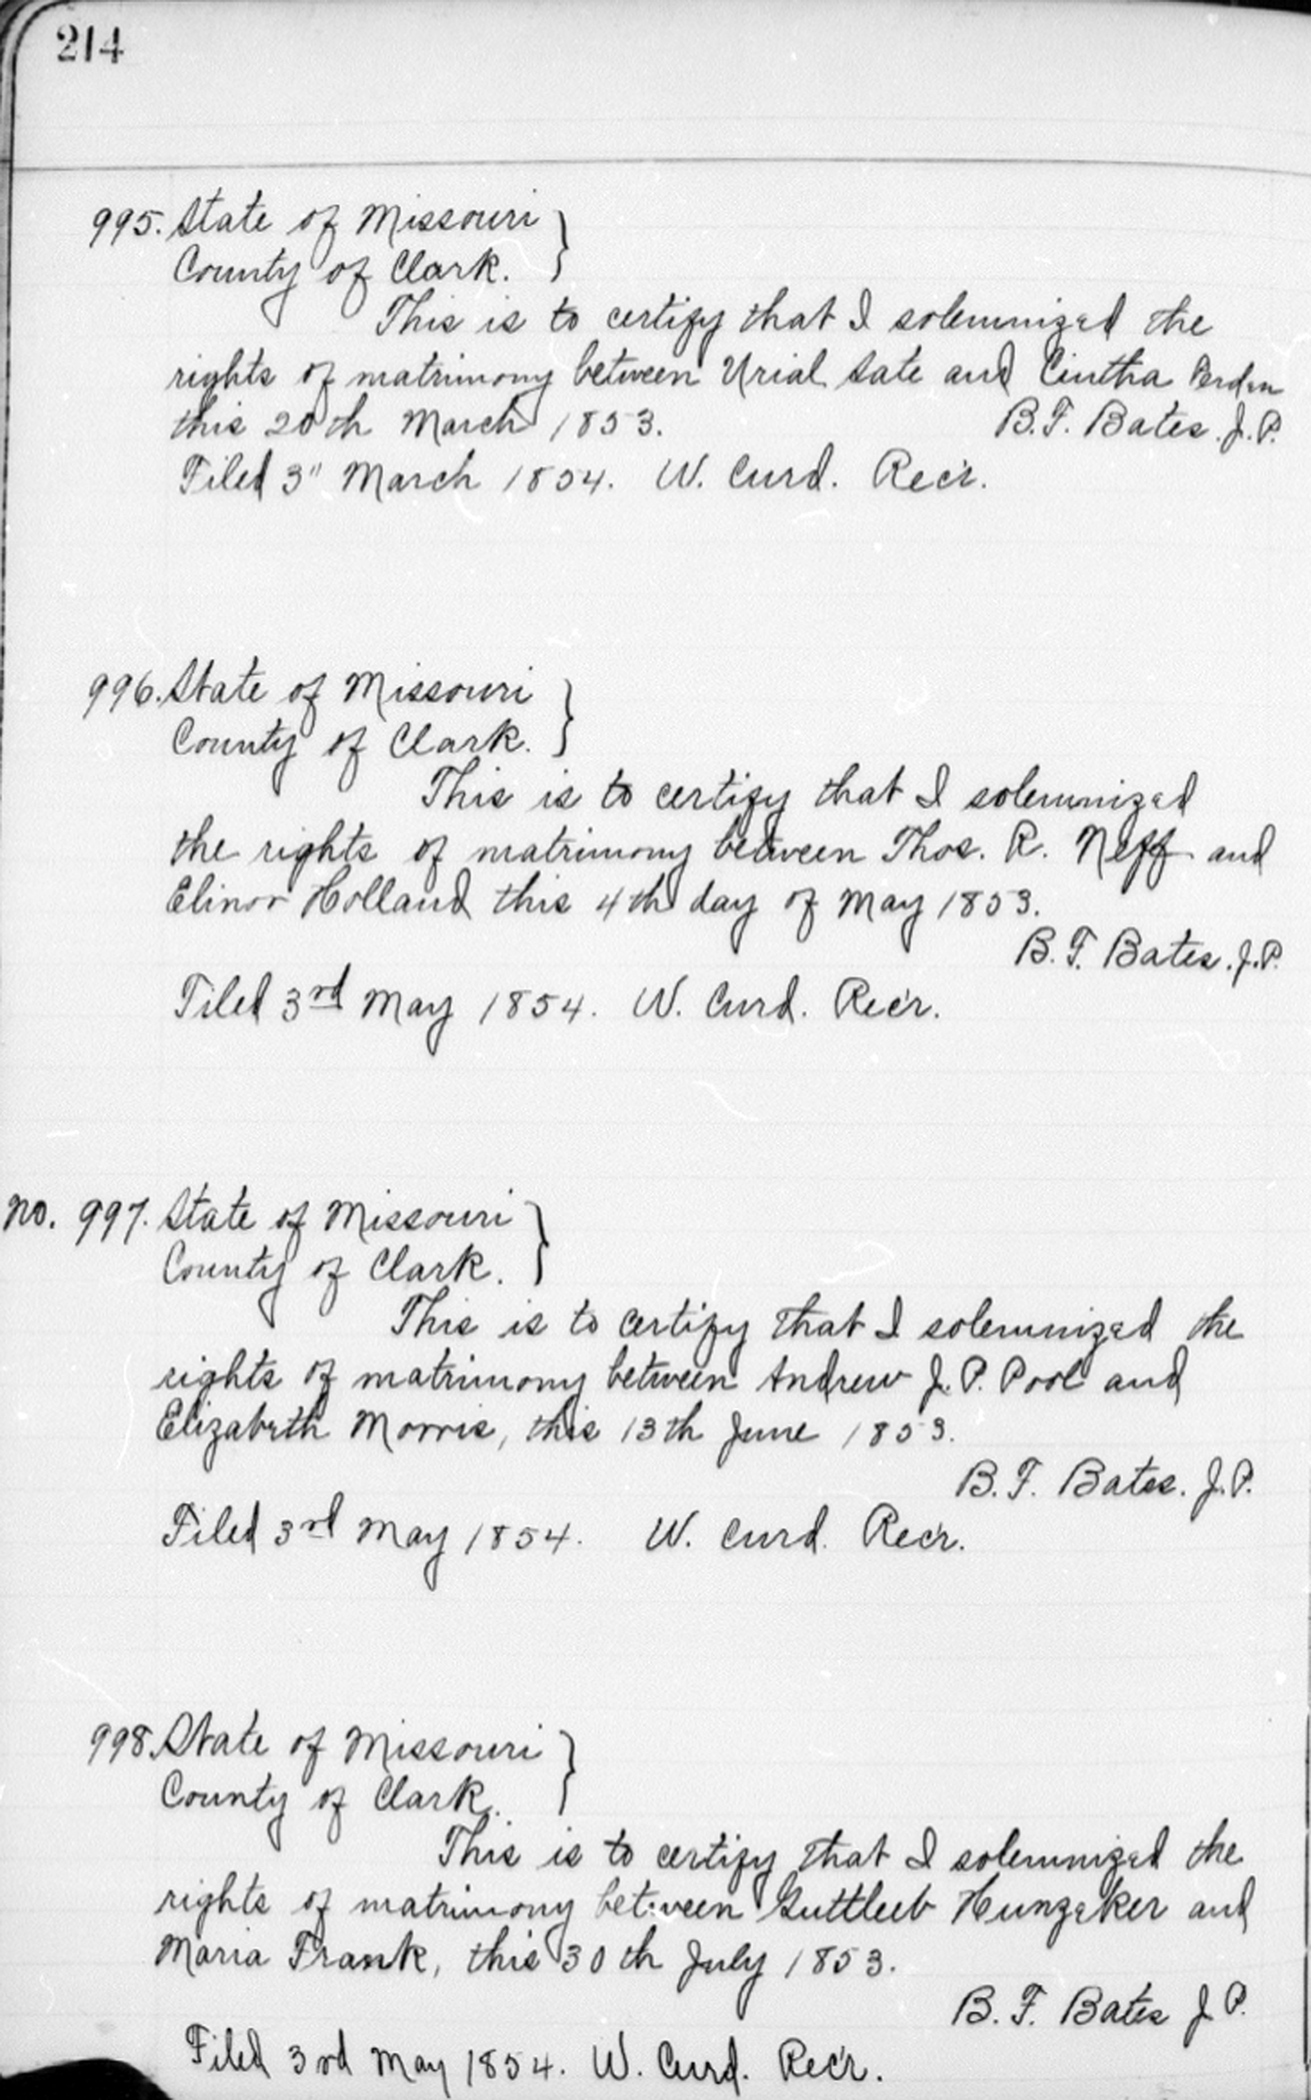 214
995. State of Missouri }
County of Clark. }
This is to certify that I solemnized the
rights of matrimony between Urial Sate and Cintha Perdin
this 20th March 1853. B.F. Bates. J.P.
Filed 3" March 1854. W. Curd. Rec'r.
996. State of Missouri }
County of Clark. }
This is to certify that I solemnized
the rights of matrimony between Thos. R. Neff and
Elinor Holland this 4th day of May 1853.
B.F. Bates. J.P.
Filed 3rd May 1854. W. Curd. Rec'r.
No. 997. State of Missouri }
County of Clark. }
This is to certify that I solemnized the
rights of matrimony between Andrew J.P. Pool and
Elizabeth Morris, this 13th June 1853.
B.F. Bates. J.P.
Filed 3rd May 1854. W. Curd. Rec'r.
998. State of Missouri }
County of Clark. }
This is to certify that I solemnized the
rights of matrimony between Guttleeb Hunzeker and
Maria Frank, this 30th July 1853.
B.F. Bates J.P.
Filed 3rd May 1854. W. Curd. Rec'r.